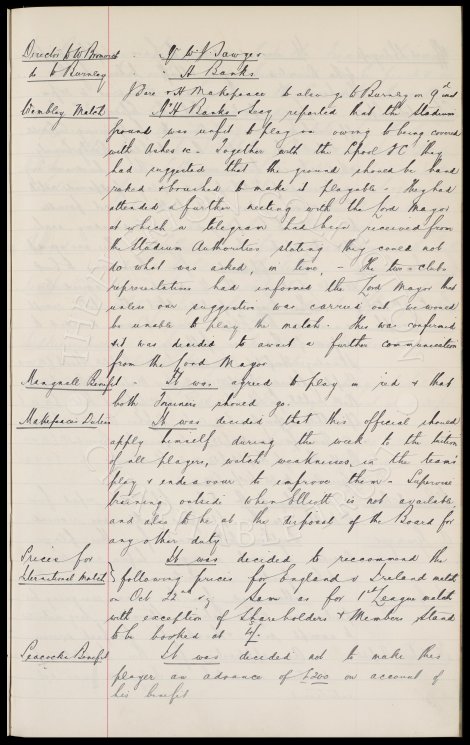 Director to W Bromwich - Mr W. J. Sawyer
do to Burnley - A Banks
J Bare & H Makepeace to also go to Burnley on 9th inst
Wembley Match Mr H Banks & Secy reported that the Stadium
ground was unfit to play on owing to being covered
with Ashes &c. Together with the Lpool F C they
had suggested that the ground should be hand
raked & brushed to make it playable - they had
attended a further meeting with the Lord Mayor
at which a telegram had been received from
the Stadium Authorities stating they could not
do what was asked, in time, - The two clubs
representatives had informed the Lord Mayor that
unless our suggestion was carried out we would
be unable to play the match. This was confirmed
& it was decided to await a further communication
from the Lord Mayor
Mangnall Benefit - It was agreed to play in red & that
both Trainers should go.
Makepeaces Duties It was decided that this official should
apply himself during the week to the tuition
of all players, watch weaknesses in the team's
play & endeavour to improve them - Supervise
training outside when Elliott is not available
and also to be at the disposal of the Board for
any other duty
Prices for It was decided to reccommend the
International Match } following prices for England v Ireland match
on Oct 22nd viz Same as for 1st League match
with exception of Shareholders & Members Stand
to be booked at 4/-
Peacocks Benefit It was decided not to make this
player an advance of £200 on account of
his benefit